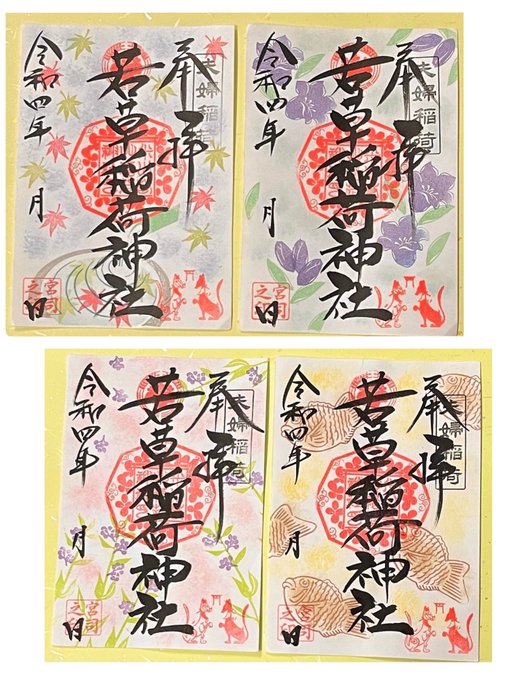 奉拝
夫婦稲荷
若草稲荷神社
令和四年 月 日
宮司之印
奉拝
夫婦稲荷
若草稲荷神社
令和四年 月 日
宮司之印
奉拝
夫婦稲荷
若草稲荷神社
令和四年 月 日
宮司之印
奉拝
夫婦稲荷
若草稲荷神社
令和四年 月 日
宮司之印